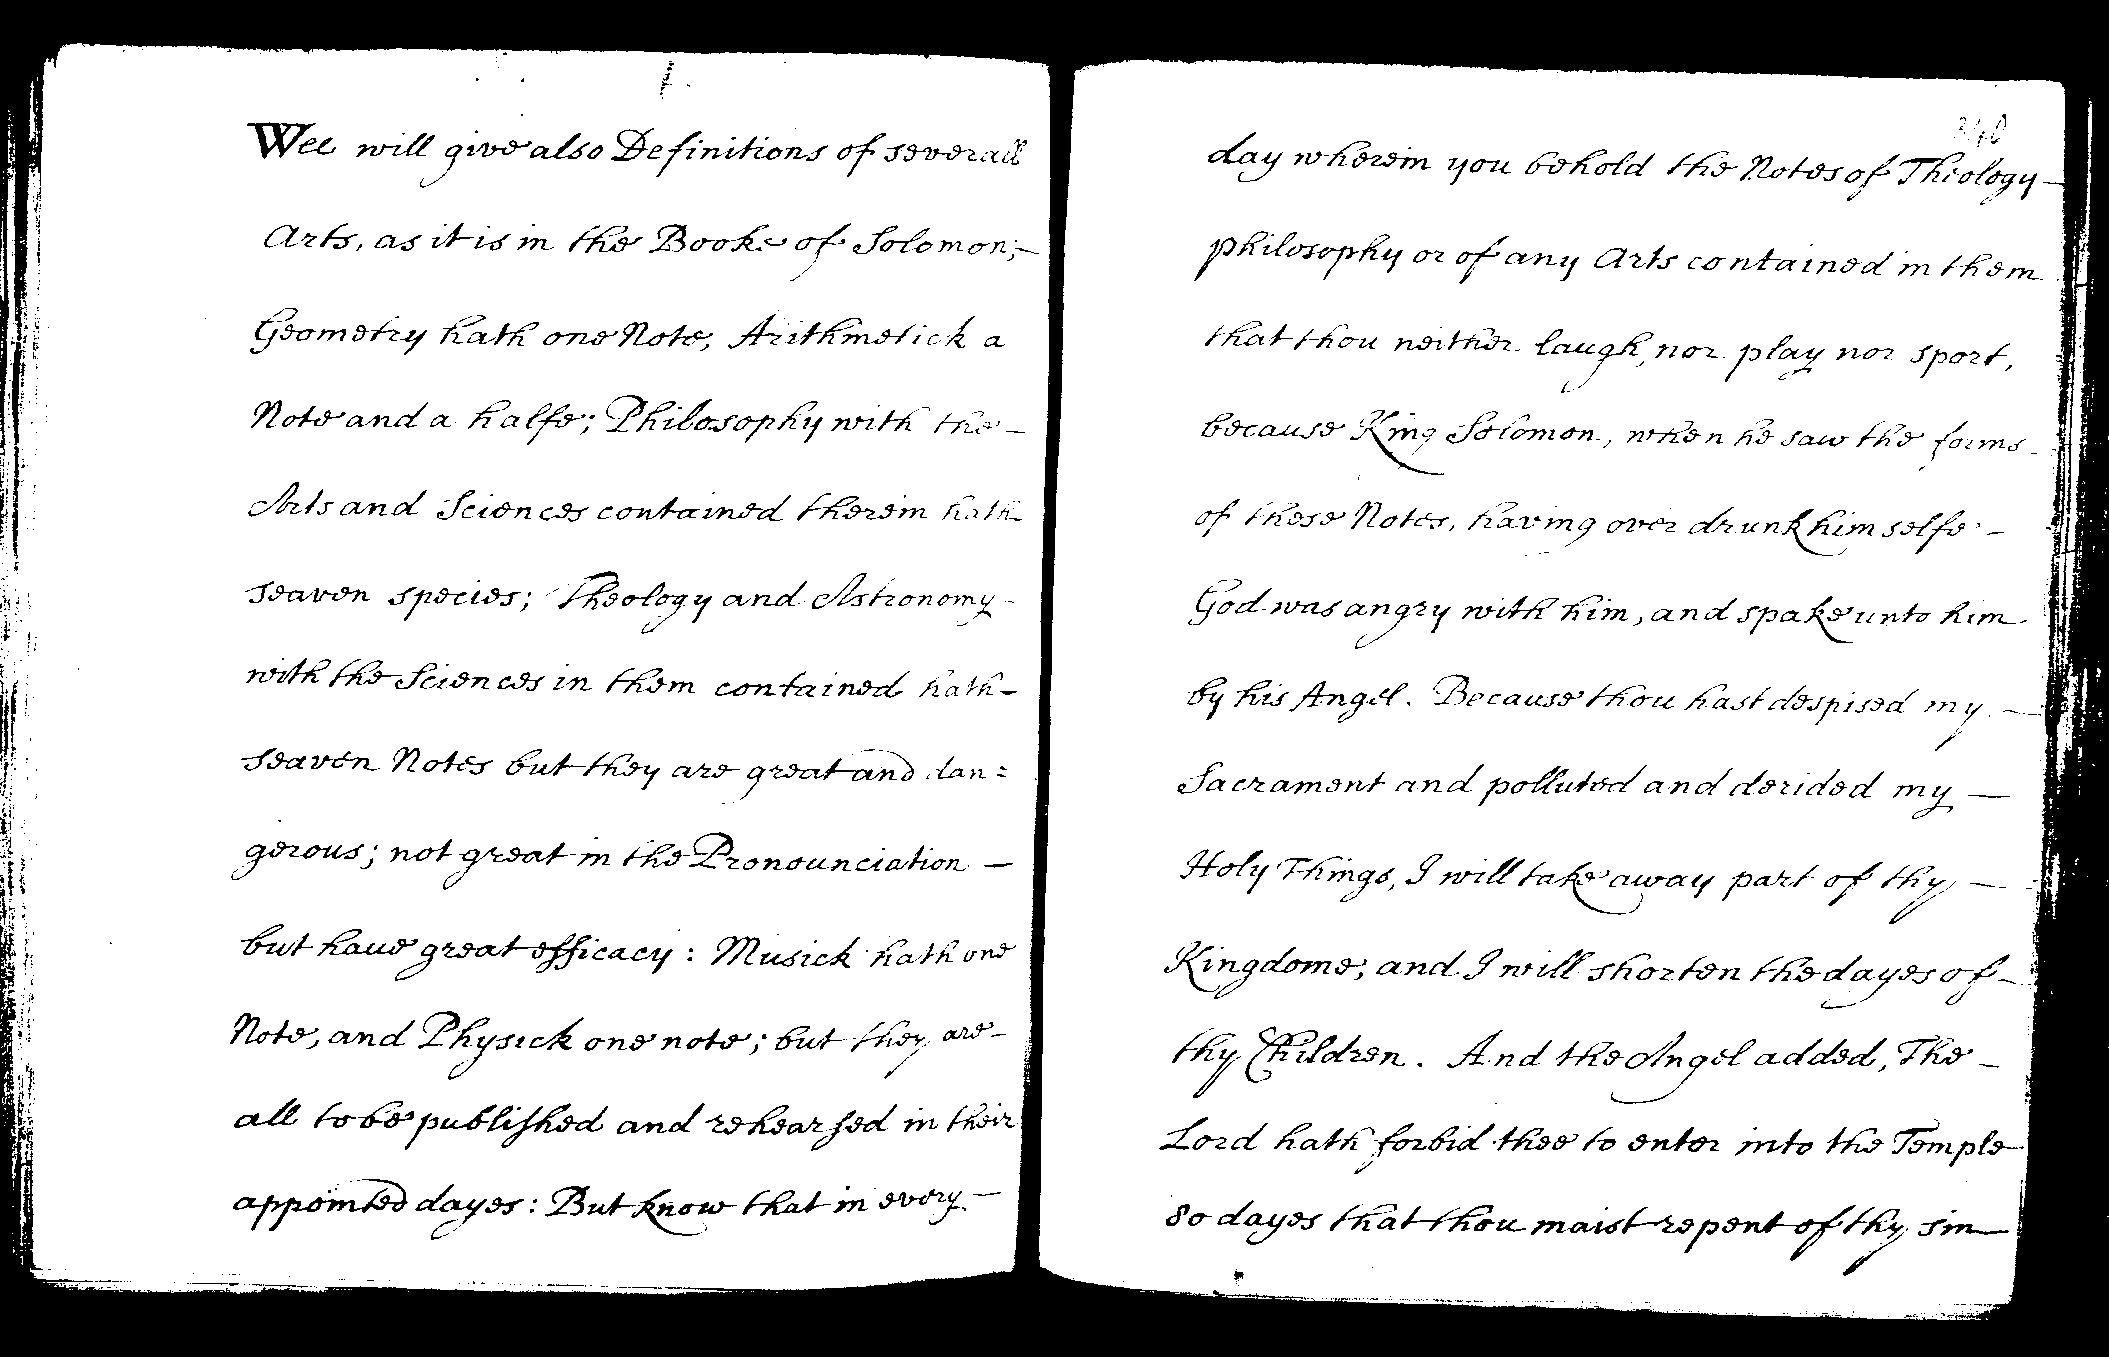 Wee will give also Definitions of severall
Arts, as it is in the Booke of Solomon;—
Geometry hath one Note, Arithmetick a
Note and a halfe; Philosophy with the—
Arts and Sciences contained therein hath
seaven species; Theology and Astronomy—
with the Sciences in them contained hath—
seaven Notes but they are great and dan=
gerous; not great in the Pronounciation —
but haue great efficacy: Musick hath one
Note, and Physick one note; but they are—
all to be publiſhed and rehearſed in their
appointed dayes: But know that in every—
240
day wherein you behold the Notes of Theology—
philosophy or of any Arts contained in them
that thou neither laugh, nor play nor sport,
because King Solomon, when he saw the forms—
of these Notes, having over drunk himselfe—
God was angry with him, and spake unto him
by his Angel. Because thou hast despised my—
Sacrament and polluted and derided my —
Holy Things, I will take away part of thy —
Kingdome, and I will shorten the dayes of—
thy Children. And the Angel added, The —
Lord hath forbid thee to enter into the Temple
80 dayes that thou maist repent of thy sin—